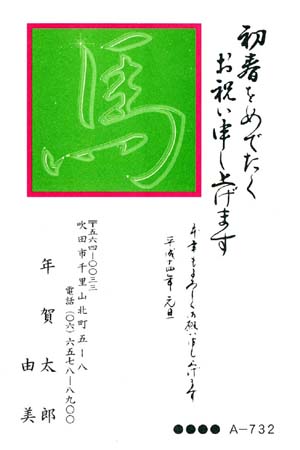 初春をめでたく
お祝い申し上げます
馬
本年もよろしくお願い申し上げます
平成十四年 元旦
〒五六四-〇〇三三
吹田市千里山北町五-八
電話(〇六)六五七八-八九〇〇
年賀太郎
由美
●●●● A-732